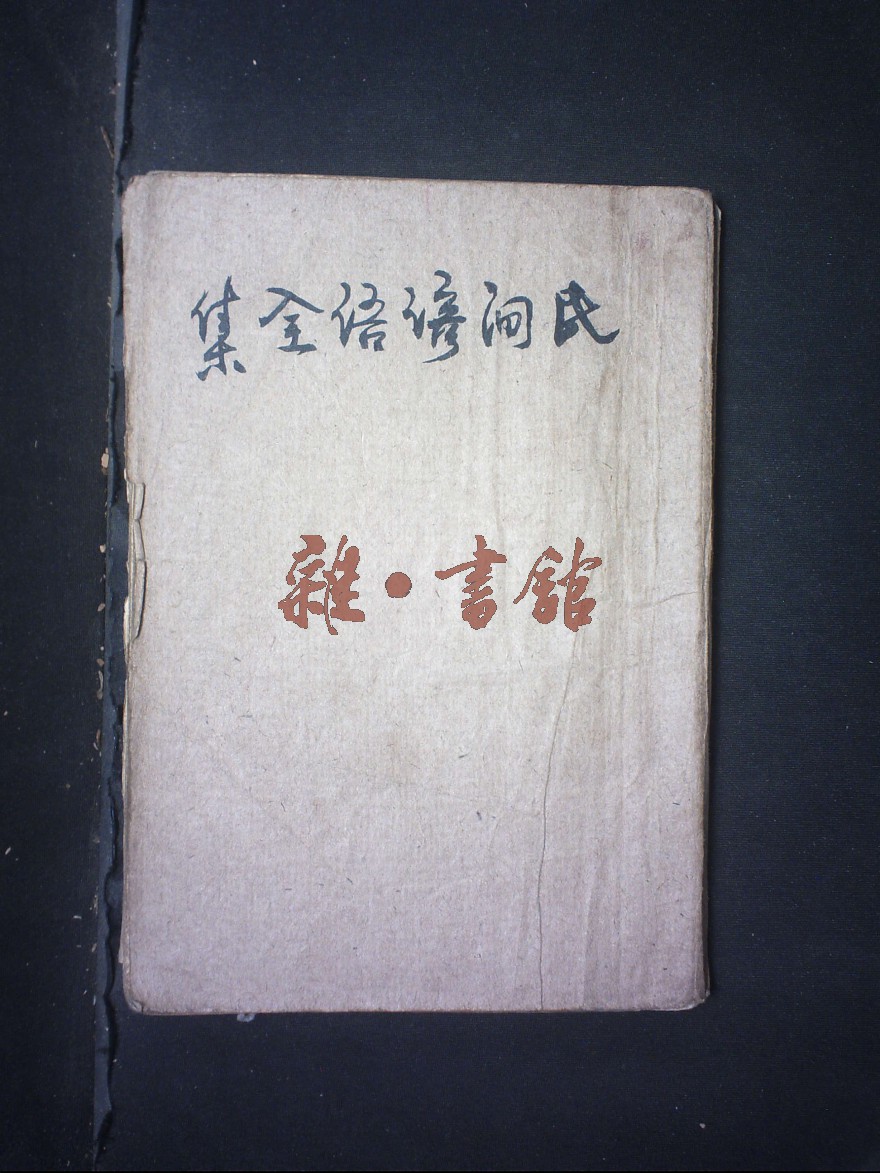 民间谚语全集
雜·書館